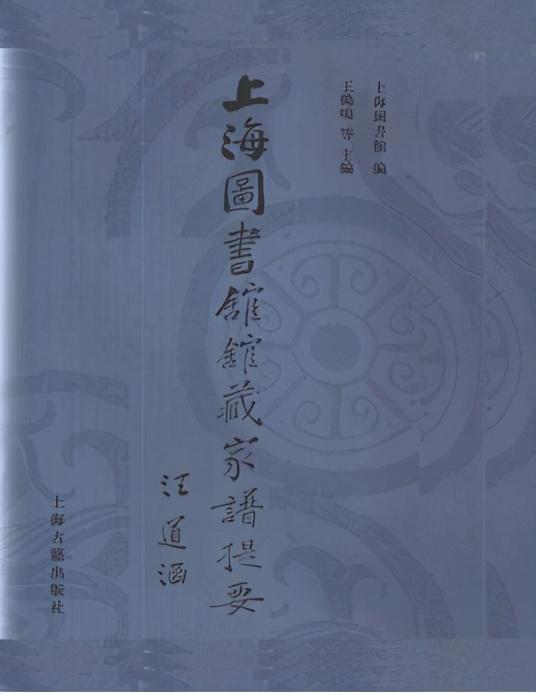 上海圖書館 編
王鶴鳴 等 主編
上海圖書舘舘藏家譜提要
汪道涵
上海古籍出版社